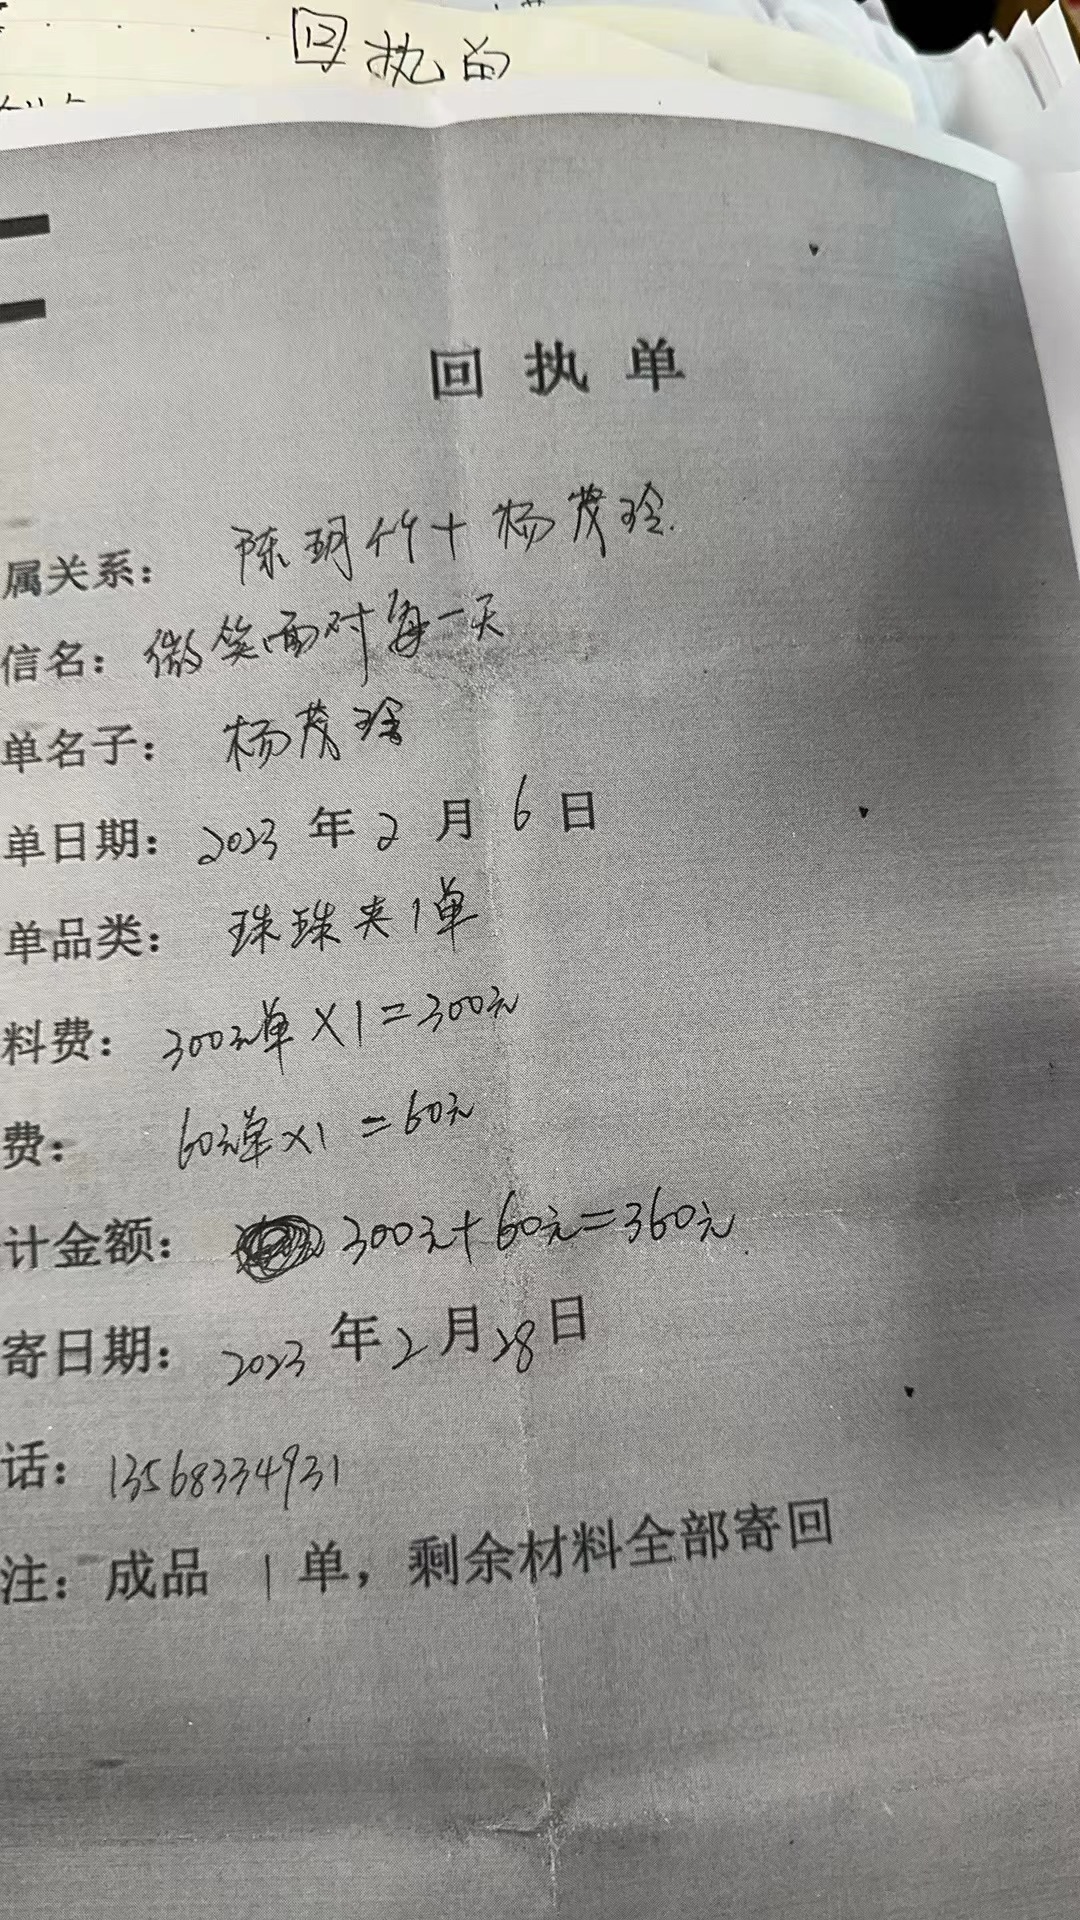 回执单
回执单
属关系: 陈玥竹+杨茂玲.
信名: 微笑面对每一天
单名子: 杨茂玲
单日期: 2023年2月6日
单品类: 珠珠夹1单
料费: 300元/单×1=300元
费: 60元/单×1=60元
计金额: 300元+60元=360元.
寄日期: 2023年2月28日
话: 13568334931
注: 成品1单，剩余材料全部寄回